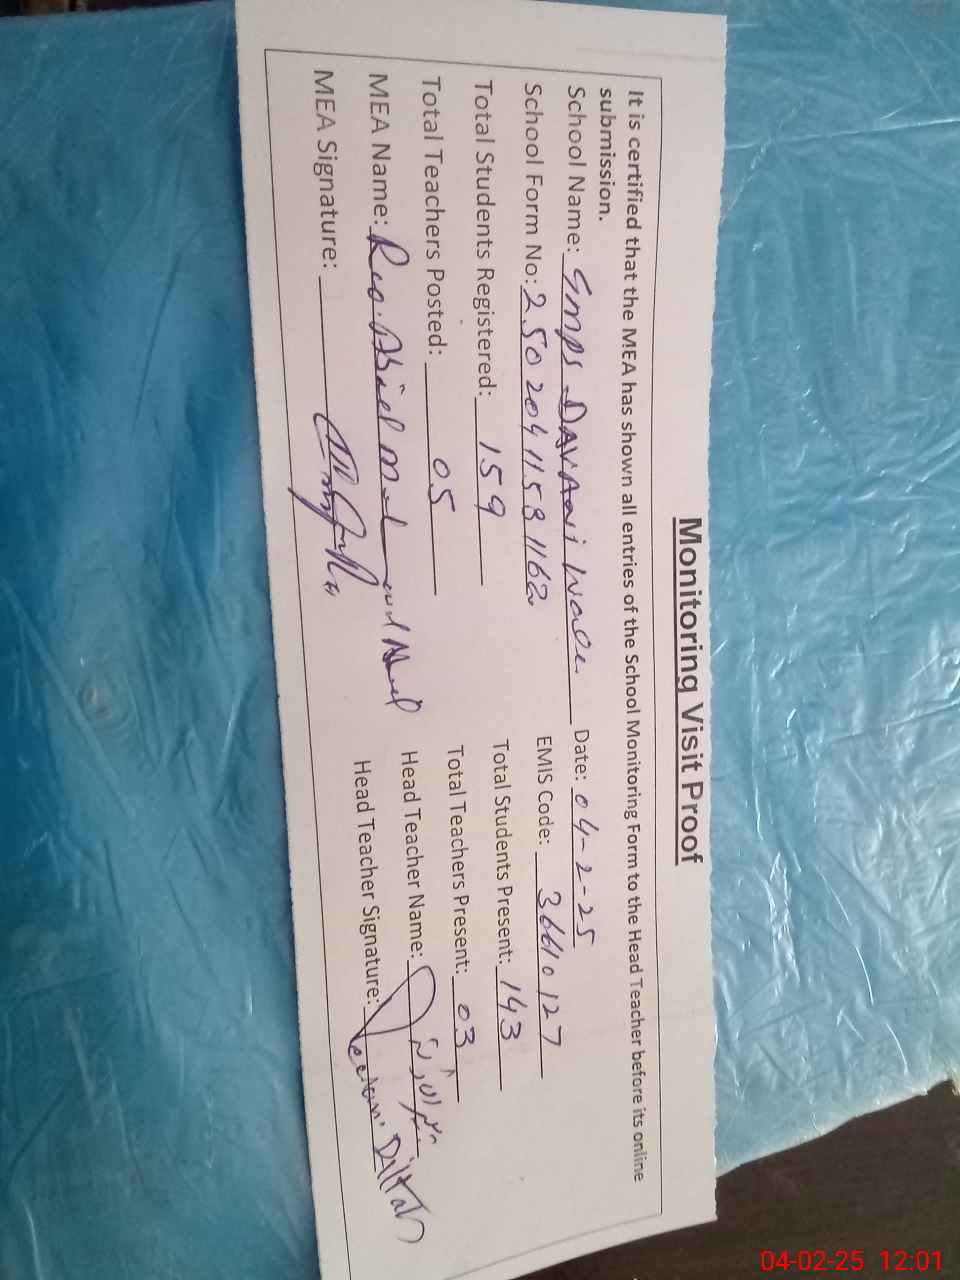 Monitoring Visit Proof
It is certified that the MEA has shown all entries of the School Monitoring Form to the Head Teacher before its online
submission.
School Name: GMPS DAVAAi Wali Date: 04-2-25
School Form No: 2502041158 1162 EMIS Code: 36610127
Total Students Registered: 159 Total Students Present: 143
Total Teachers Posted: 05 Total Teachers Present: 03
MEA Name: Rao Head Teacher Name:
MEA Signature: Head Teacher Signature:
04-02-25 12:01